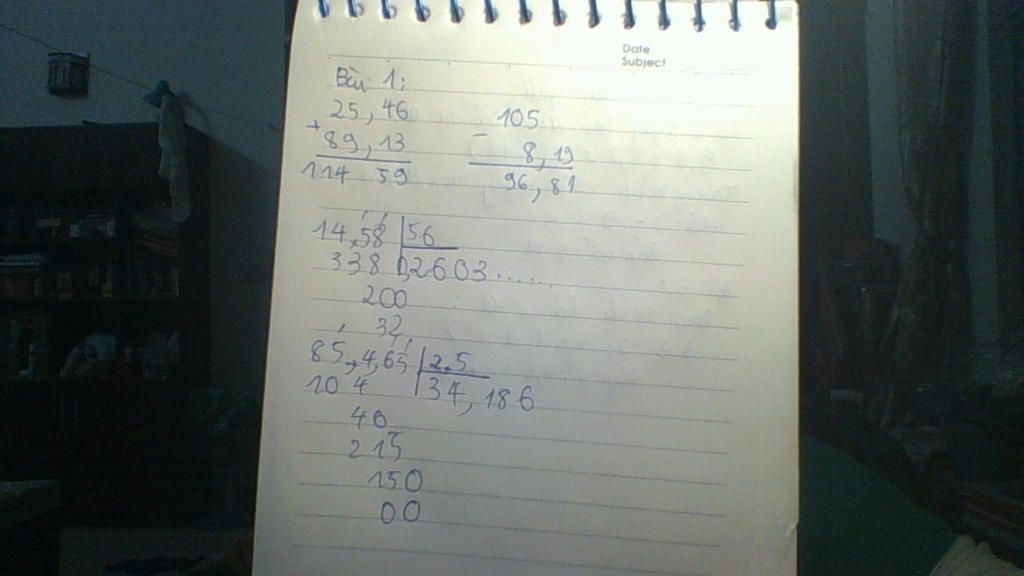 Date
Subject
Bài 1:
25,46 105
+ -
89,13 8,19
114 59 96,81
14,58 56
338 0,2603.....
200
32
85,4,65 2,5
10 4 34,186
46
215
150
00